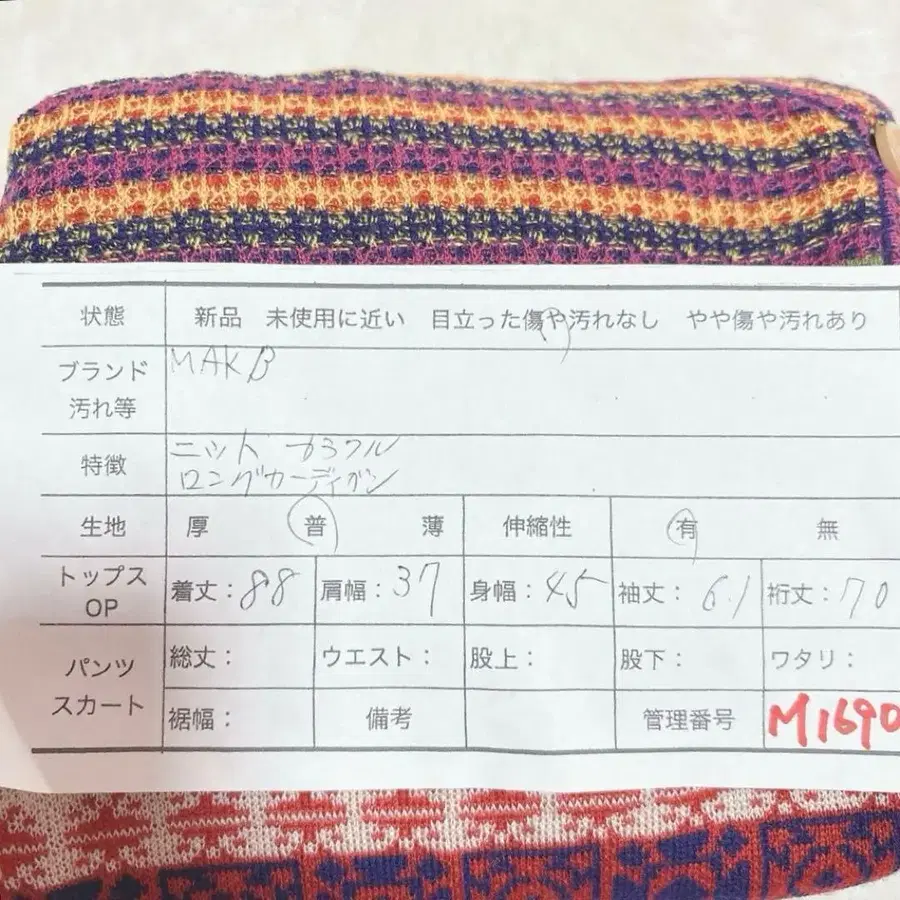 状態 新品 未使用に近い 目立った傷や汚れなし やや傷や汚れあり
ブランド MAKB
汚れ等
特徴 ニット カラフル
ロングカーディガン
生地 厚 普 薄 伸縮性 有 無
トップス OP 着丈：88 肩幅：37 身幅：45 袖丈：61 裄丈：70
パンツ スカート 総丈： ウエスト： 股上： 股下： ワタリ：
裾幅： 備考 管理番号 M1690